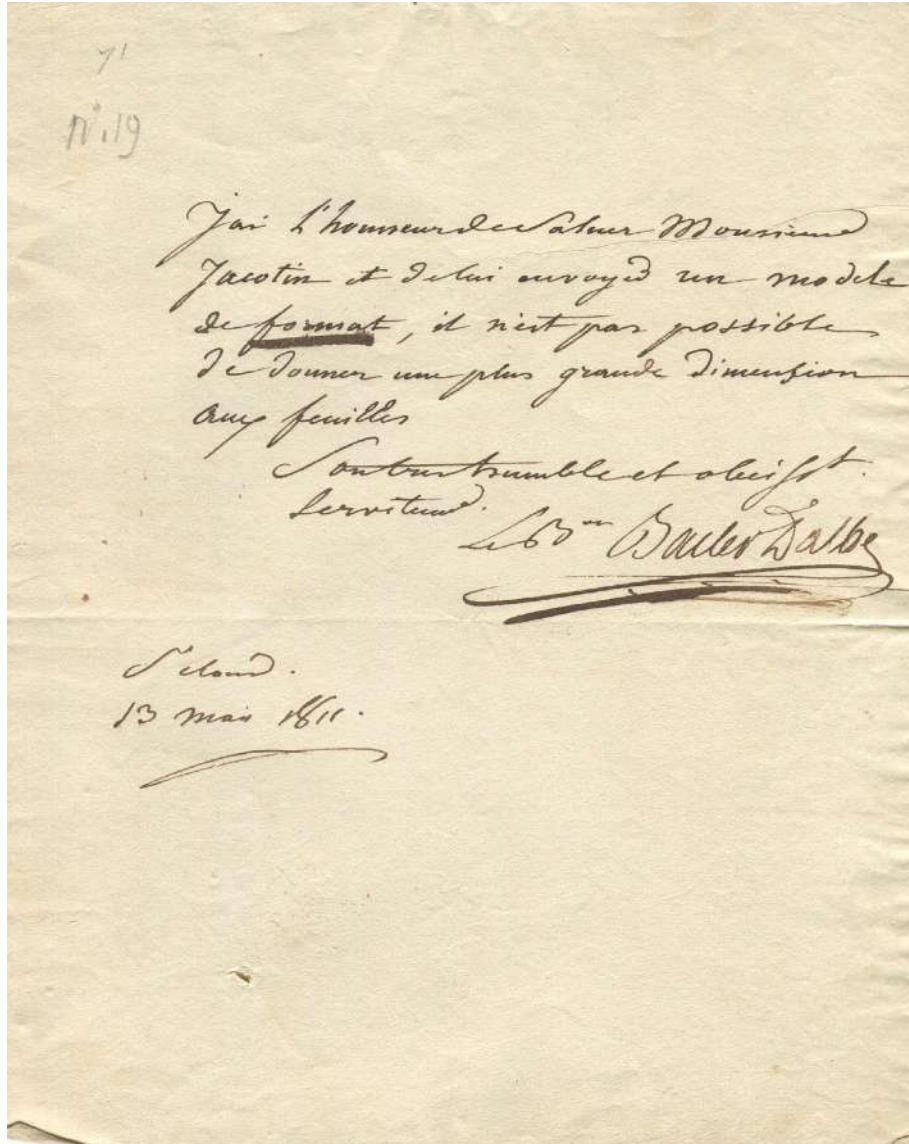 71
N°. 19
J'ai l'honneur de Saluer Monsieur
Jacotin et de lui envoyer un modele
de format, il n'est pas possible
de donner une plus grande dimension
aux feuilles
Son tres humble et obeisst.
Serviteur.
Le Bon Bacler Dalbe
St cloud.
13 mai 1811.